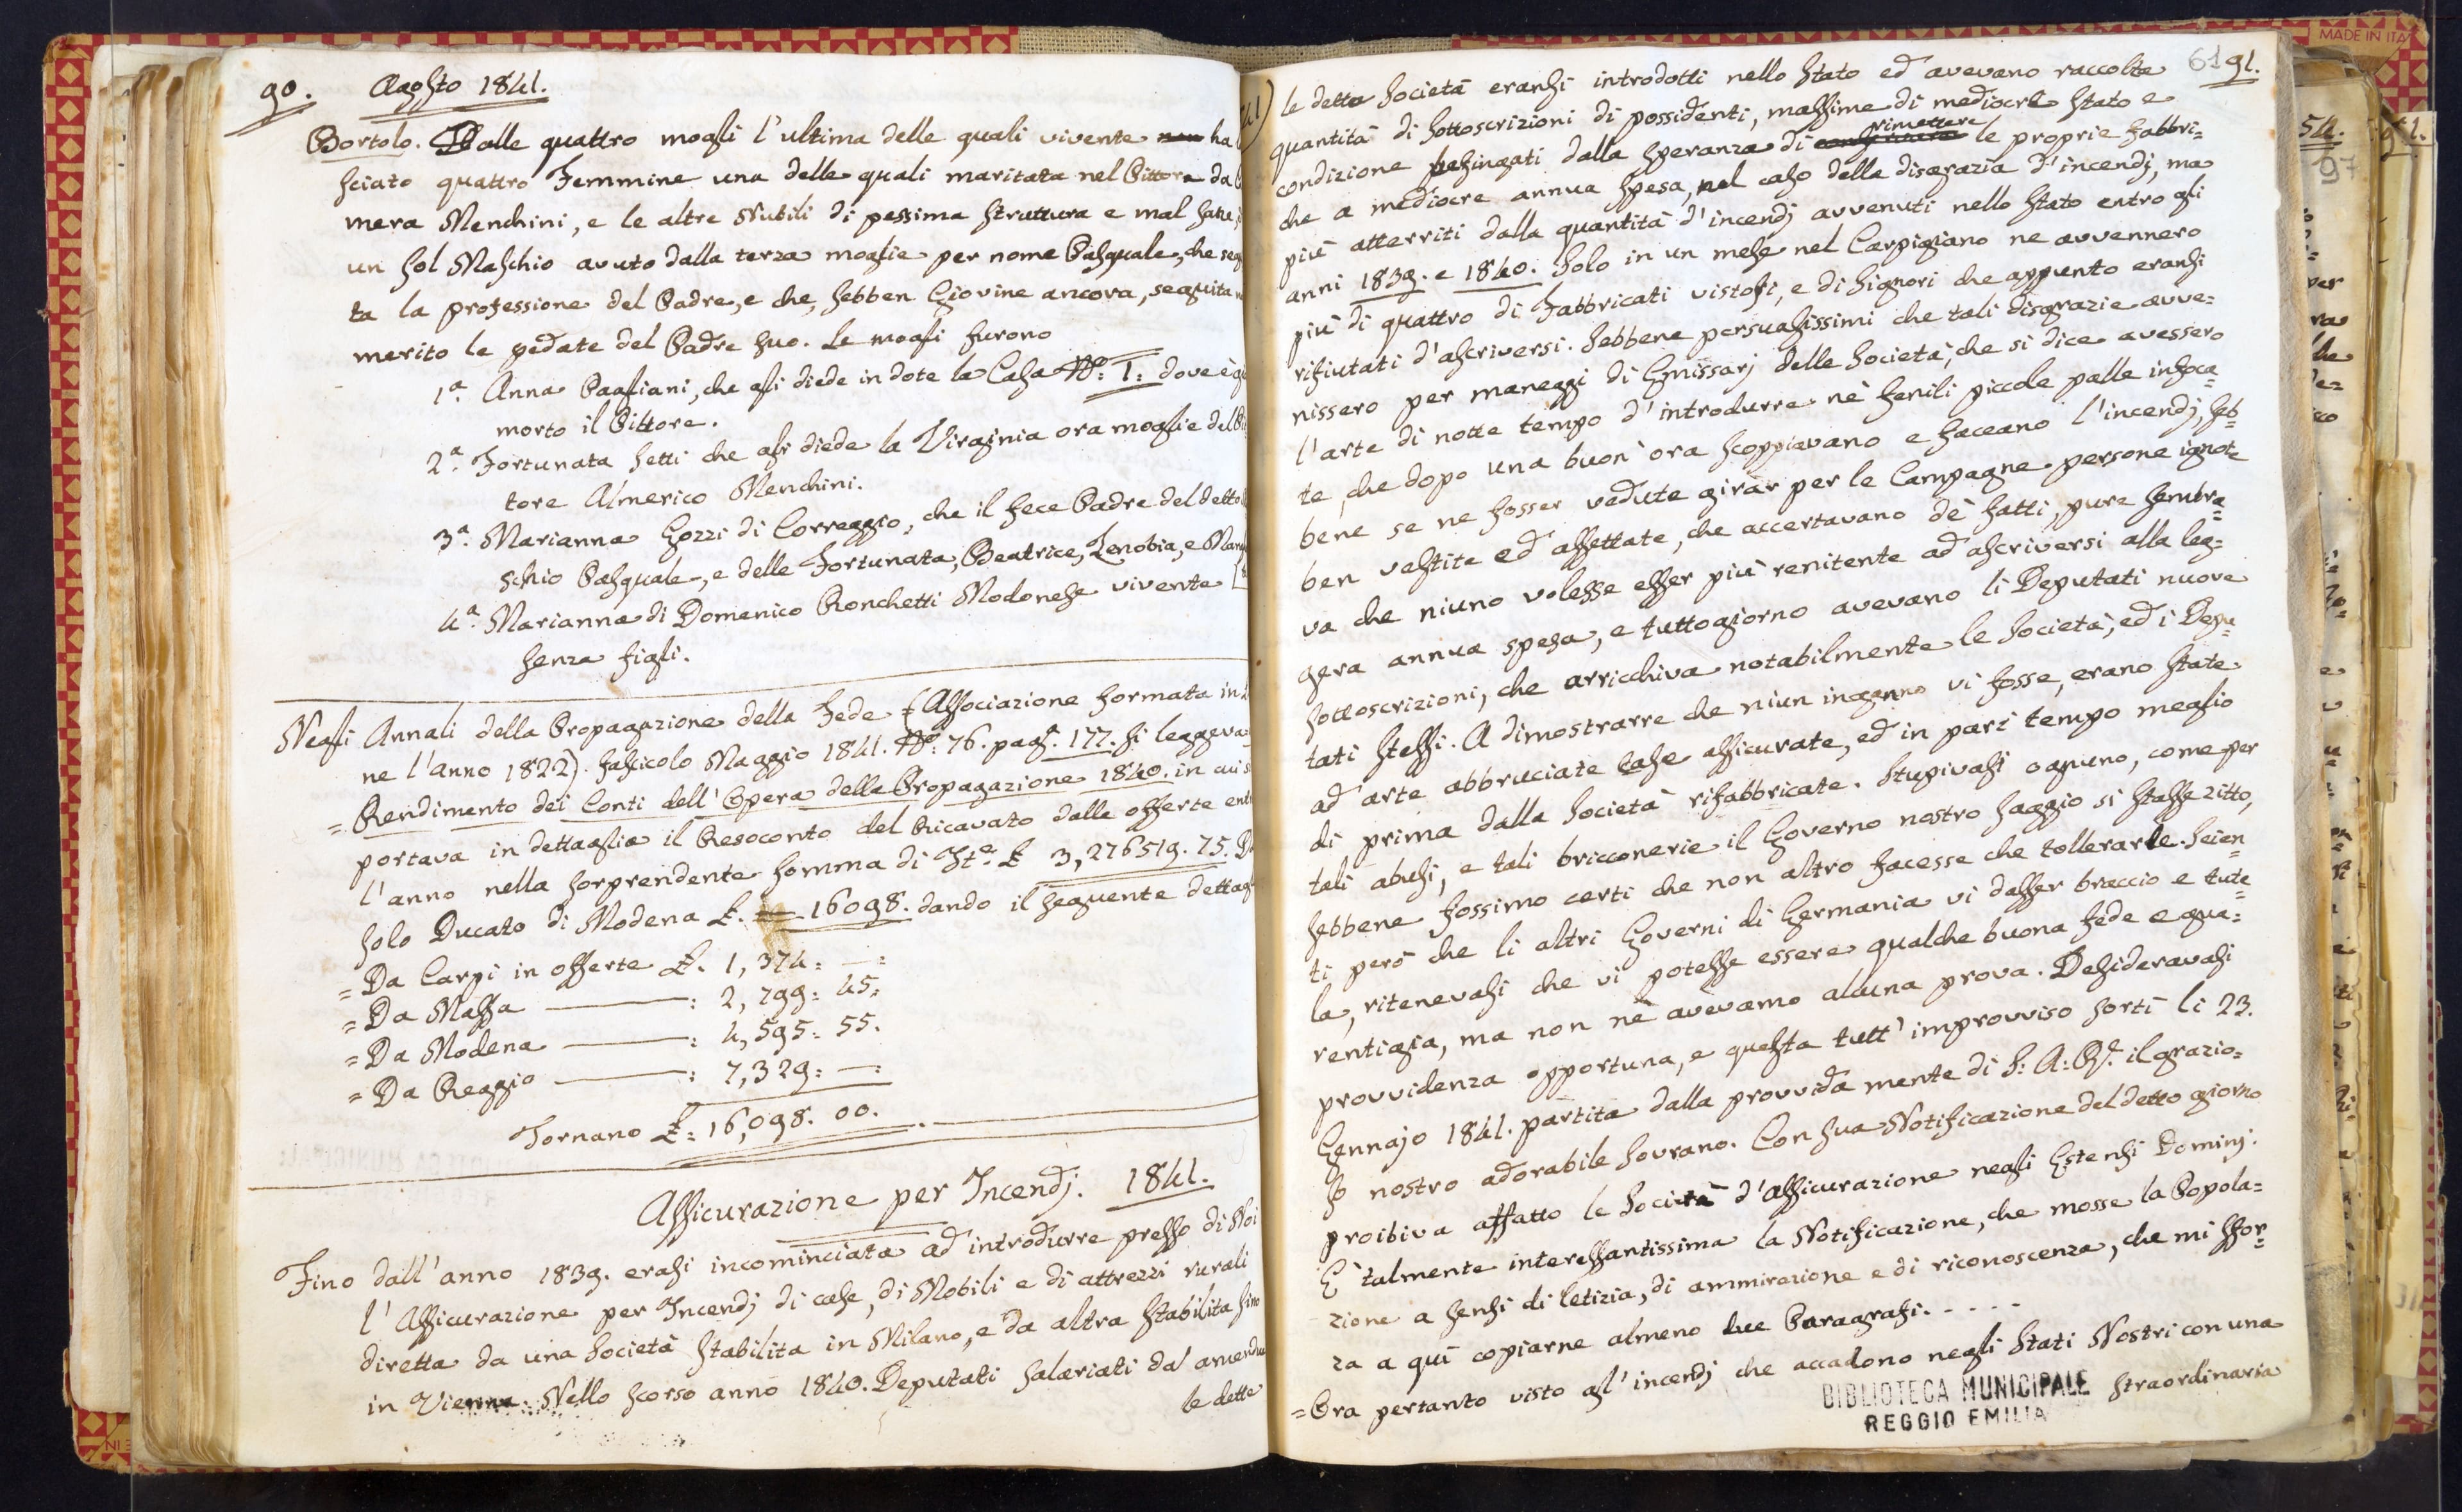 90. Agosto 1841.
Bortolo. Dalle quattro mogli l'ultima delle quali vivente non ha
sciato quattro Femmine una delle quali maritata nel Pittore da
mera Menchini, e le altre Nubili di pessima struttura e mal fatte,
un sol Maschio avuto dalla terza moglie per nome Pasquale, che
ta la professione del Padre, e che, sebben Giovine ancora, seguita
merito le pedate del Padre suo. Le mogli furono
1.a Anna Pagliani, che gli diede in dote la Casa N.o: 1: dove è
morto il Pittore.
2.a Fortunata Setti che gli diede la Virginia ora moglie del
tore Almerico Menchini.
3.a Marianna Gozzi di Correggio, che il fece Padre del detto
schio Pasquale, e delle Fortunata, Beatrice, Zenobia, e
4.a Marianna di Domenico Ronchetti Modonese vivente
senza figli.
Negli Annali della Propagazione della Fede (Associazione formata in
ne l'anno 1822). fascicolo Maggio 1841. N.o: 76. pag. 177. si leggeva
= Rendimento dei Conti dell'Opera della Propagazione 1840. in cui
portava in dettaglio il Resoconto del Ricavato dalle offerte
l'anno nella sorprendente somma di It.e £ 3,276519. 75.
solo Ducato di Modena £. 16098. dando il seguente
= Da Carpi in offerte £. 1,374: —:
= Da Massa ———: 2,799: 45:
= Da Modena ———: 4,595: 55.
= Da Reggio ———: 7,329: —:
Tornano £: 16,098. 00.
Assicurazione per Incendj. 1841.
Fino dall'anno 1839. erasi incominciata ad introdurre presso di Noi
l'Assicurazione per Incendj di case, di Mobili e di attrezzi rurali
diretta da una Società stabilita in Milano, e da altra stabilita sino
in Vienna. Nello scorso anno 1840. Deputati salariati da amendue
le dette
61 91.
le dette Società eransi introdotti nello Stato ed avevano raccolte
quantità di sottoscrizioni di possidenti, massime di mediocre stato e
rimettere
condizione lusingati dalla speranza di le proprie fabbri=
che a mediocre annua spesa, nel caso della disgrazia d'incendj, ma
più atterriti dalla quantità d'incendj avvenuti nello Stato entro gli
anni 1839. e 1840. Solo in un mese nel Carpigiano ne avvennero
più di quattro di Fabbricati vistosi, e di Signori che appunto eransi
rifiutati d'ascriversi. Sebbene persuasissimi che tali disgrazie avve=
nissero per maneggi di Emissarj delle Società, che si dice avessero
l'arte di notte tempo d'introdurre nè fenili piccole palle infoca=
te, che dopo una buon'ora scoppiavano e faceano l'incendj, seb=
bene se ne fosser vedute girar per le Campagne persone ignot=
ben vestite ed assettate, che accertavano dè fatti, pure sembra=
va che niuno volesse esser più renitente ad ascriversi alla leg=
gera annua spesa, e tuttogiorno avevano li Deputati nuove
sottoscrizioni, che arricchiva notabilmente le Società, ed i Depu=
tati stessi. A dimostrarre che niun inganno vi fosse, erano state
ad arte abbruciate case assicurate, ed in pari tempo meglio
di prima dalla Società rifabbricate. Stupivasi ognuno, come per
tali abusi, e tali bricconerie il Governo nostro saggio si stasse zitto,
sebbene fossimo certi che non altro facesse che tollerarle. Scien=
ti però che li altri Governi di Germania vi dasser braccio e tute=
la, ritenevasi che vi potesse essere qualche buona fede e gua=
rentigia, ma non nè avevamo alcuna prova. Desideravasi
provvidenza opportuna, e questa tutt'improvviso sortì li 23.
Gennajo 1841. partita dalla provvida mente di S: A: R.e il grazio=
so nostro adorabile Sovrano. Con sua Notificazione del detto giorno
proibiva affatto le Società d'assicurazione negli Estensi Dominj.
E' talmente interessantissima la Notificazione, che mosse la Popola=
zione a sensi di letizia, di ammirazione e di riconoscenza, che mi sfor=
za a quì copiarne almeno due Paragrafi. - - - -
= Ora pertanto visto gl'incendj che accadono negli Stati Nostri con una
straordinaria
BIBLIOTECA MUNICIPALE
REGGIO EMILIA
MADE IN ITA